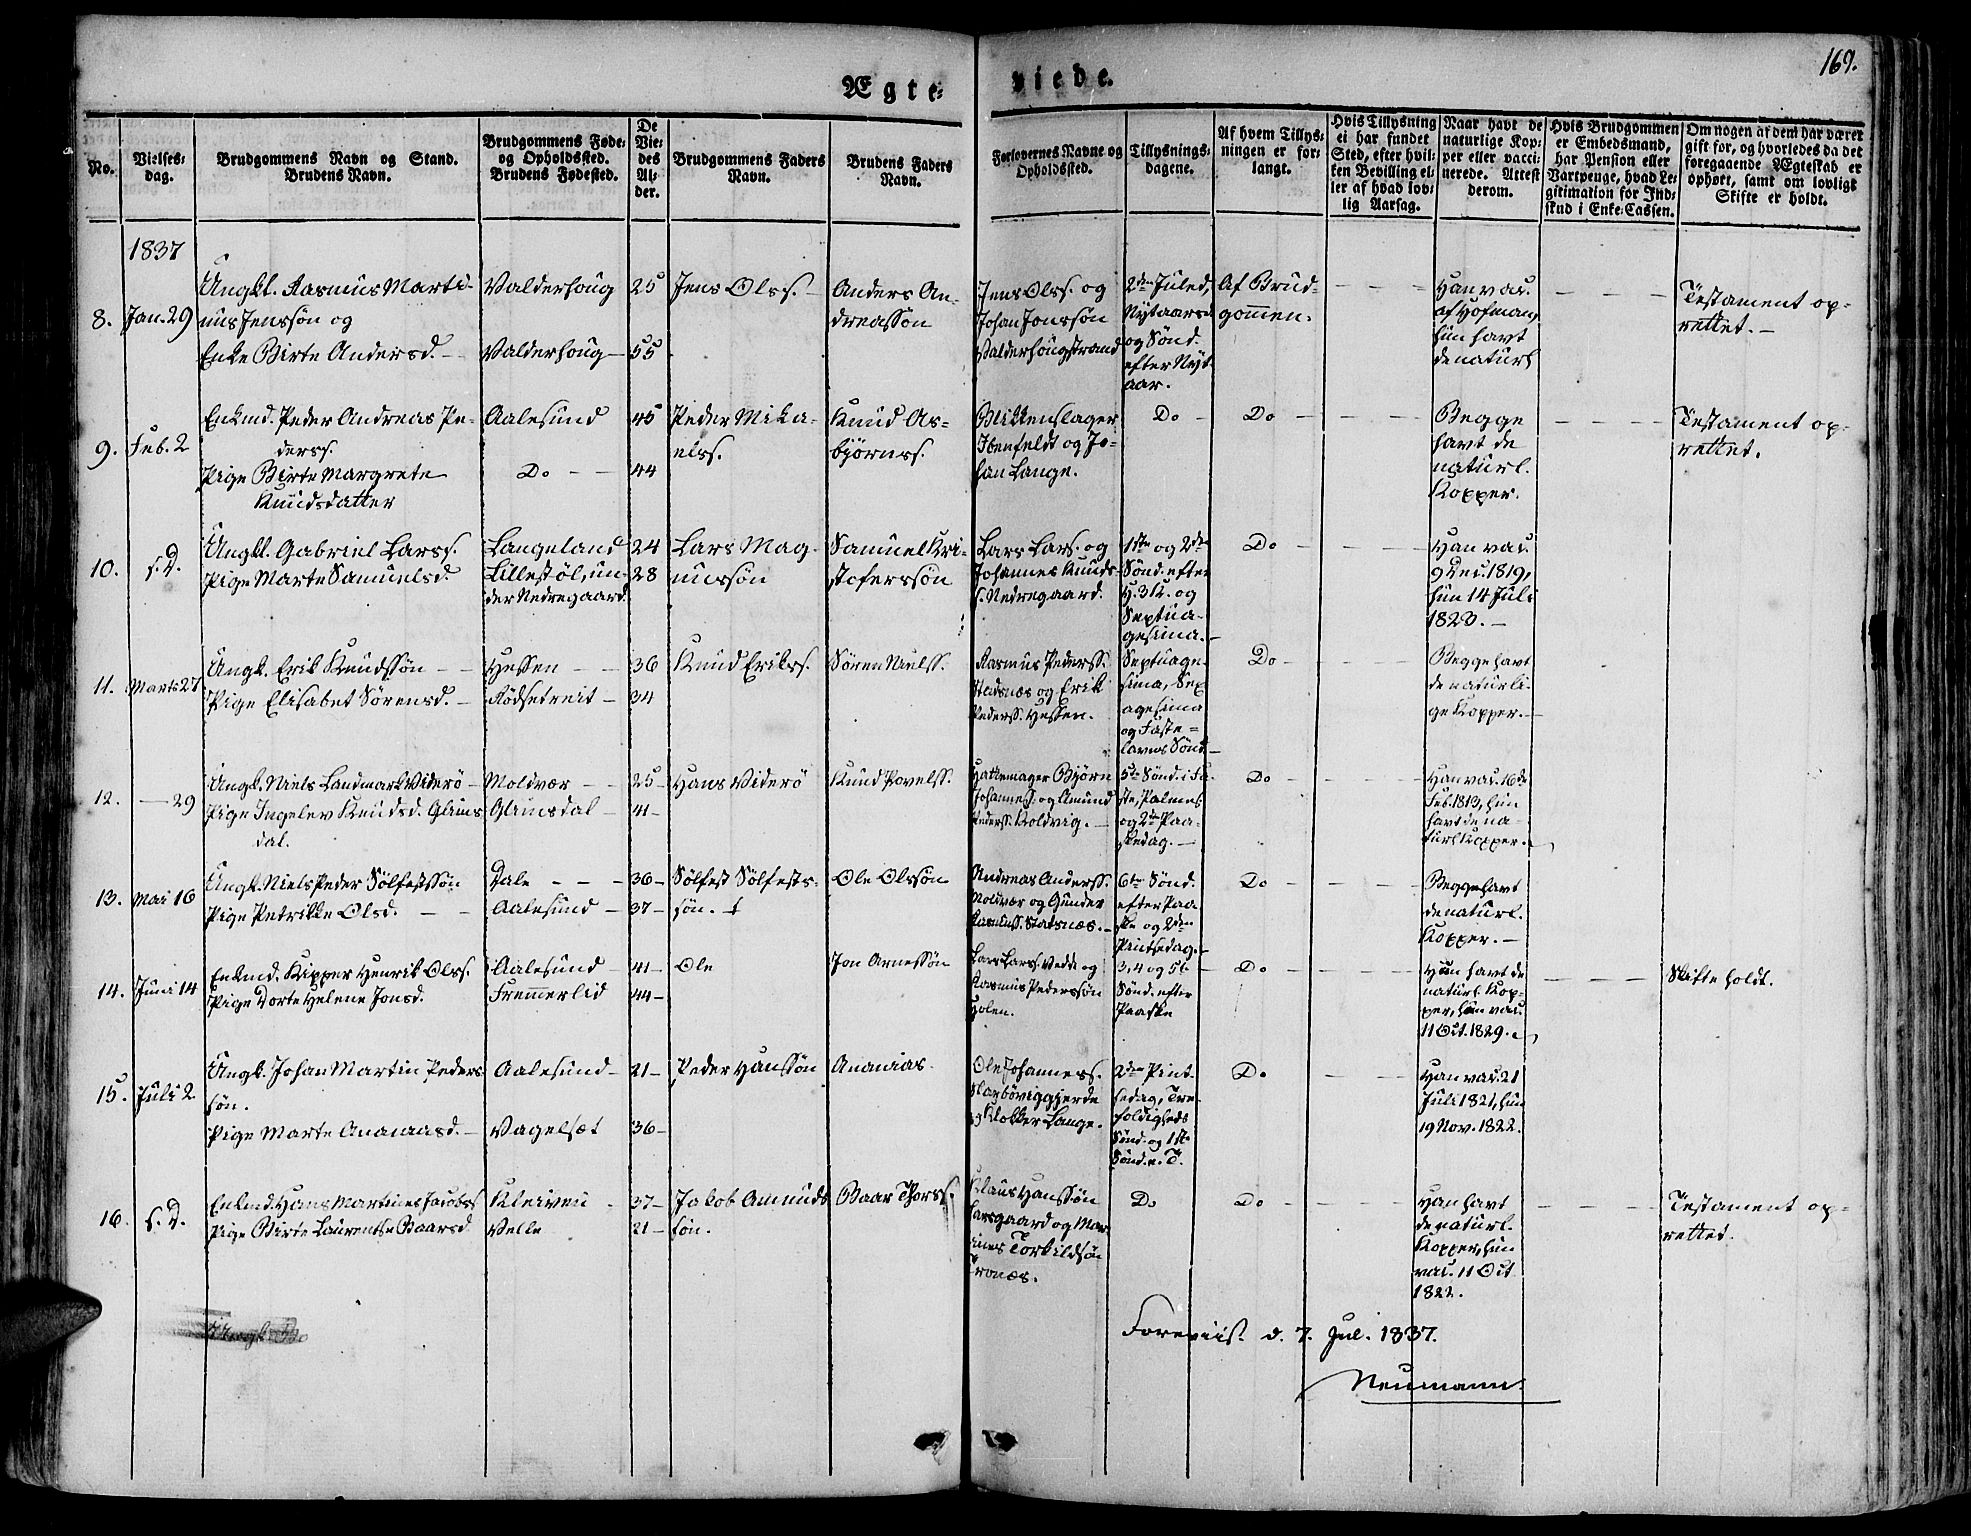 169.
Ægte-
viede.
No.
Vielses-
dag.
Brudgommens Navn og Stand.
Brudens Navn.
Brudgommens Føde-
og Opholdssted.
Brudens Fødested.
De
Vie-
des
Al-
der.
Brudgommens Faders
Navn.
Brudens Faders
Navn.
Forlovernes Navne og
Opholdssted.
Tillysnings-
dagene.
Af hvem Tillys-
ningen er for-
langt.
Hvis Tillysning
ei har fundet
Sted, efter hvil-
ken Bevilling el-
ler af hvad lov-
lig Aarsag.
Naar havt de
naturlige Kop-
per eller vacci-
nerede. Attest
derom.
Hvis Brudgommen
er Embedsmand,
har Pension eller
Vartpenge, hvad Le-
gitimation for Ind-
skud i Enke-Cassen.
Om nogen af dem har været
gift før, og hvorledes da det
foregaaende Ægteskab er
ophørt, samt om lovligt
Skifte er holdt.
1837
8. Jan. 29
Ungkl. Rasmus Marti-
nus Jenssøn og
Enke Birte Andersd.
Valderhoug
Valderhoug
25
55
Jens Olss.
Anders An-
dreassøn
Jens Olss. og
Johan Jonssøn
Valderhougstrand
2den Juled,
Nytaarsd.
og Sønd.
efter Nyt-
aar.
Af Brud-
gommen.
Han vac.
af Hofman,
hun havt
de naturl.
Testament op-
rettet.
9. Feb. 2
Enkmd. Peder Andreas Pe-
derss.
Pige Birte Margrete
Knudsdatter
Aalesund
Do
45
44
Peder Mika-
elss.
Knud As-
bjørnss.
Bukkenslager
Ibenfeldt og Jo-
han Lange.
Do
Do
Begge
havt de
naturl.
Kopper.
Testament op-
rettet.
10. s. D.
Ungkl. Gabriel Larss.
Pige Marte Samuelsd.
Langeland
Lillestøl, un-
der Nedregaard
24
28
Lars Mag-
nussøn
Samuel Kri-
stoferssøn
Lars Lars. og
Johannes Knuds-
s. Nedregaard.
1ste og 2den
Sønd. efter
H. 3 K. og
Septua-
gesima.
Do
Han vac.
9 Dec. 1819,
hun 14 Juli
1823.
11. Marts 27
Ungk. Erik Knudssøn
Pige Elisabet Sørensd.
Hessen
Rødsetreit
36
34
Knud Erikss.
Søren Nielss.
Rasmus Pederss.
Stadsnæs og Erik
Pederss. Hessen.
Septuage-
sima, Sex-
agesima
og Faste-
lavns Sønd.
Do
Begge havt
de naturli-
ge Kopper.
12. — 29
Ungk. Niels Landmark Viderø
Pige Ingelev Knudsd. Glams-
dal.
Moldvær
Glamsdal
25
41
Hans Viderø
Knud Povelss.
Hattemager Bjørn
Johanness. og Amund
Pederss. Koldvig.
5te Sønd. i Fa-
ste, Palmes.
og 2den Paa-
skedag.
Do
Han vac. 16de
Feb. 1813, hun
havt de na-
turl. Kopper.
13. Mai 16
Ungk. Niels Peder Sølfestssøn
Pige Petrikke Olsd.
Dale
Aalesund
36
37
Sølfest Sølfests-
søn.
Ole Olssøn
Andreas Anderss.
Moldvær og Gunder
Rasmuss. Statsnæs.
6te Sønd.
efter Paa-
ske og 2den
Pintsedag.
Do
Begge havt
de naturl.
Kopper.
14. Juni 14
Enkmd. Kipper Henrik Olss.
Pige Dorte Helene Jonsd.
Aalesund
Fremmerlid
41
44
Ole
Jon Arnessøn
Lars Larss. Vedde og
Rasmus Pederssøn
Holen.
3, 4 og 5te
Sønd. efter
Paaske
Do
Han havt de
naturl. Kop-
per, hun vac.
11 Oct. 1829.
Skifte holdt.
15. Juli 2
Ungk. Johan Martin Peders-
søn.
Pige Marte Ananiasd.
Aalesund
Vagelsæt
21
36
Peder Hanssøn
Ananias.
Ole Johanness.
Slagbøviggjerde
og Klokker Lange.
2den Pint-
sedag, Tre-
foldigheds
Sønd. og 1ste
Sønd. e. T.
Do
Han vac. 21
Juli 1821, hun
19 Nov. 1822.
16. s. D.
Enkmd. Hans Martines Jacobss.
Pige Birte Laurentse Baarsd
Kleiven
Velle
37
21
Jakob Amunds-
søn.
Baar Thorss.
Klaus Hanssøn
Larsgaard og Mar-
tines Torkildsøn
Tronæs.
Do
Do
Han havt
de naturl.
Kopper, hun
vac. 11 Oct
1822.
Testament op-
rettet.
Foreviist. d. 7. Jul. 1837.
Neumann.